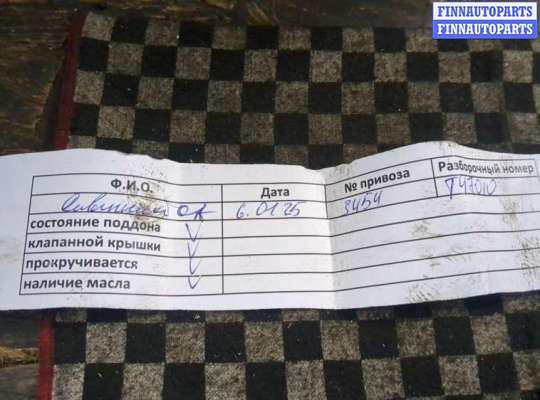 FINNAUTOPARTS
FINNAUTOPARTS
Ф.И.О. Дата № привоза Разборочный номер
6.01.25 3454 T47010
состояние поддона
клапанной крышки
прокручивается
наличие масла